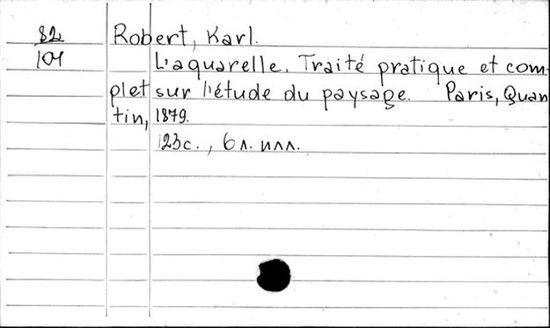 82
104
Robert, Karl.
L'aquarelle. Traité pratique et com-
plet sur l'étude du paysage. Paris, Quan
tin, 1879.
123с., 6 л. илл.